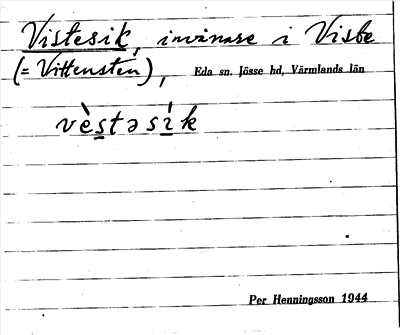 Vistesik, invånare i Visbe
(= Vittensten), Eda sn. Jösse hd, Värmlands län
vèstəsìk
Per Henningsson 1944